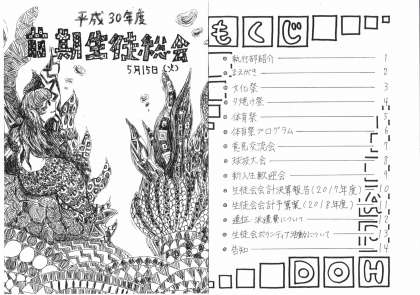 平成30年度
前期生徒総会
5月15日(火)
もくじ
執行部紹介 1
まえがき 2
文化祭 3
夕焼け祭 4
体育祭 5
体育祭プログラム 6
意見交流会 7
球技大会 8
新入生歓迎会 9
生徒会会計決算報告(2017年度) 10
生徒会会計予算案(2018年度) 11
遠征・派遣費について
生徒会ボランティア活動について 13
告知 14
DOH